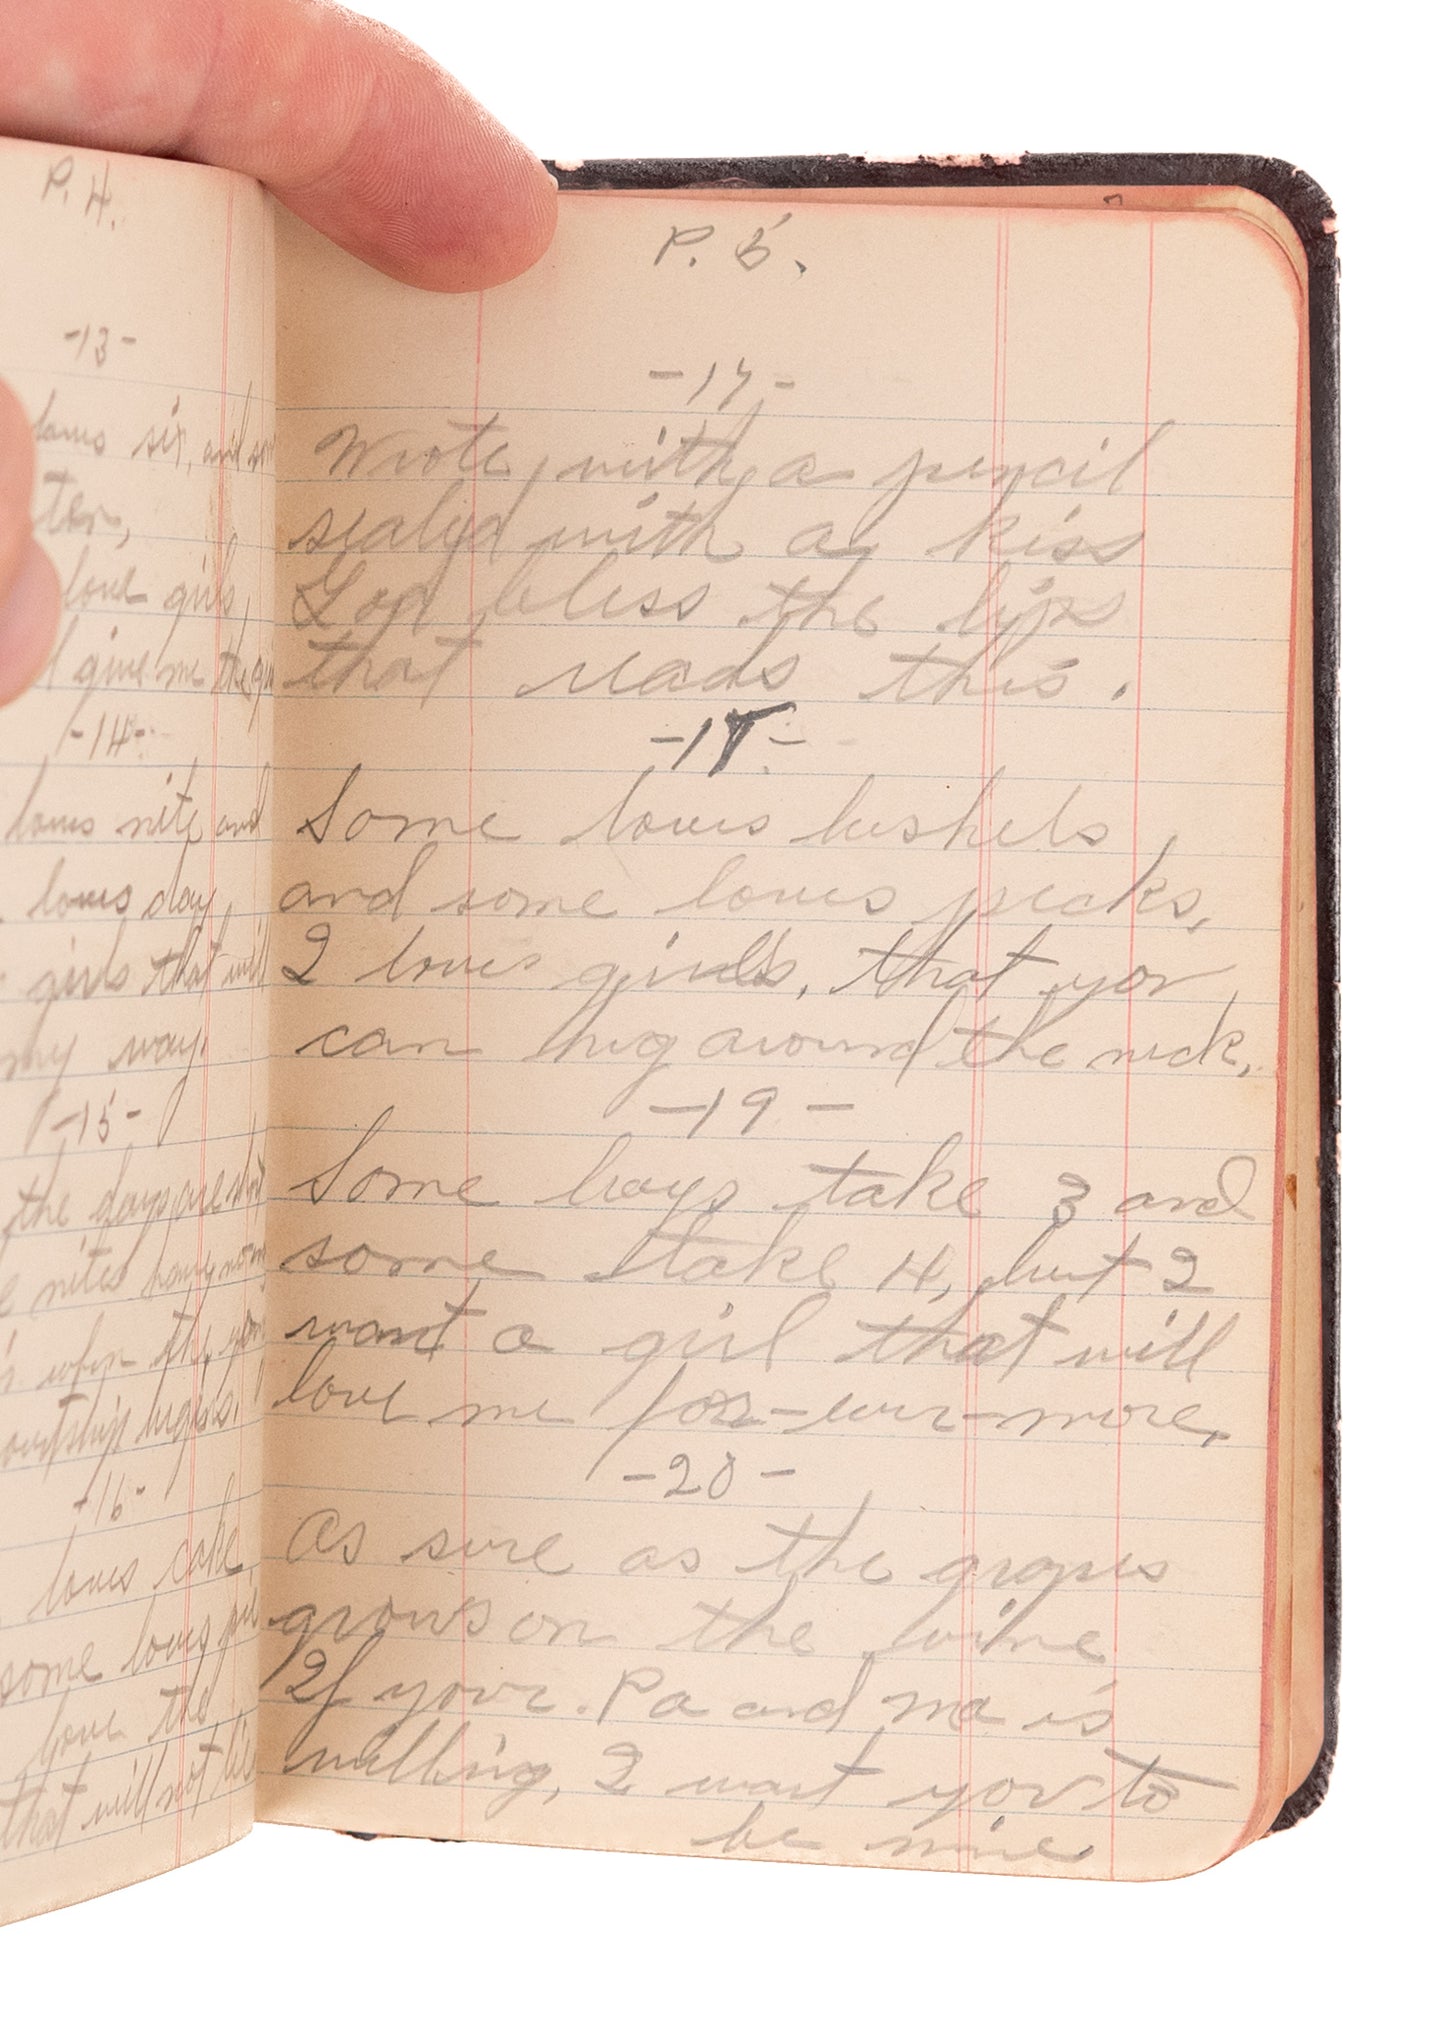 P. 4.
-13-
loves six, and
ter,
love girls,
give me the
-14-
loves nite and
loves day,
girls that will
my way.
-15-
the days are short
nites
when the
courtship begins.
-16-
loves cake
some loves pie
love the
that will not
P. 5.
-17-
Wrote, with, a pencil
sealed with a, kiss
God bless the lips
that reads this.
-18-
Some loves bushels,
and some loves pecks,
I loves girls, that you,
can hug around the neck,
-19-
Some boys take 3 and
some take 4, but I
want a girl that will
love me for-ever-more,
-20-
As sure as the grapes
grows on the vine
If your. Pa and ma is
willing, I want you to
be mine